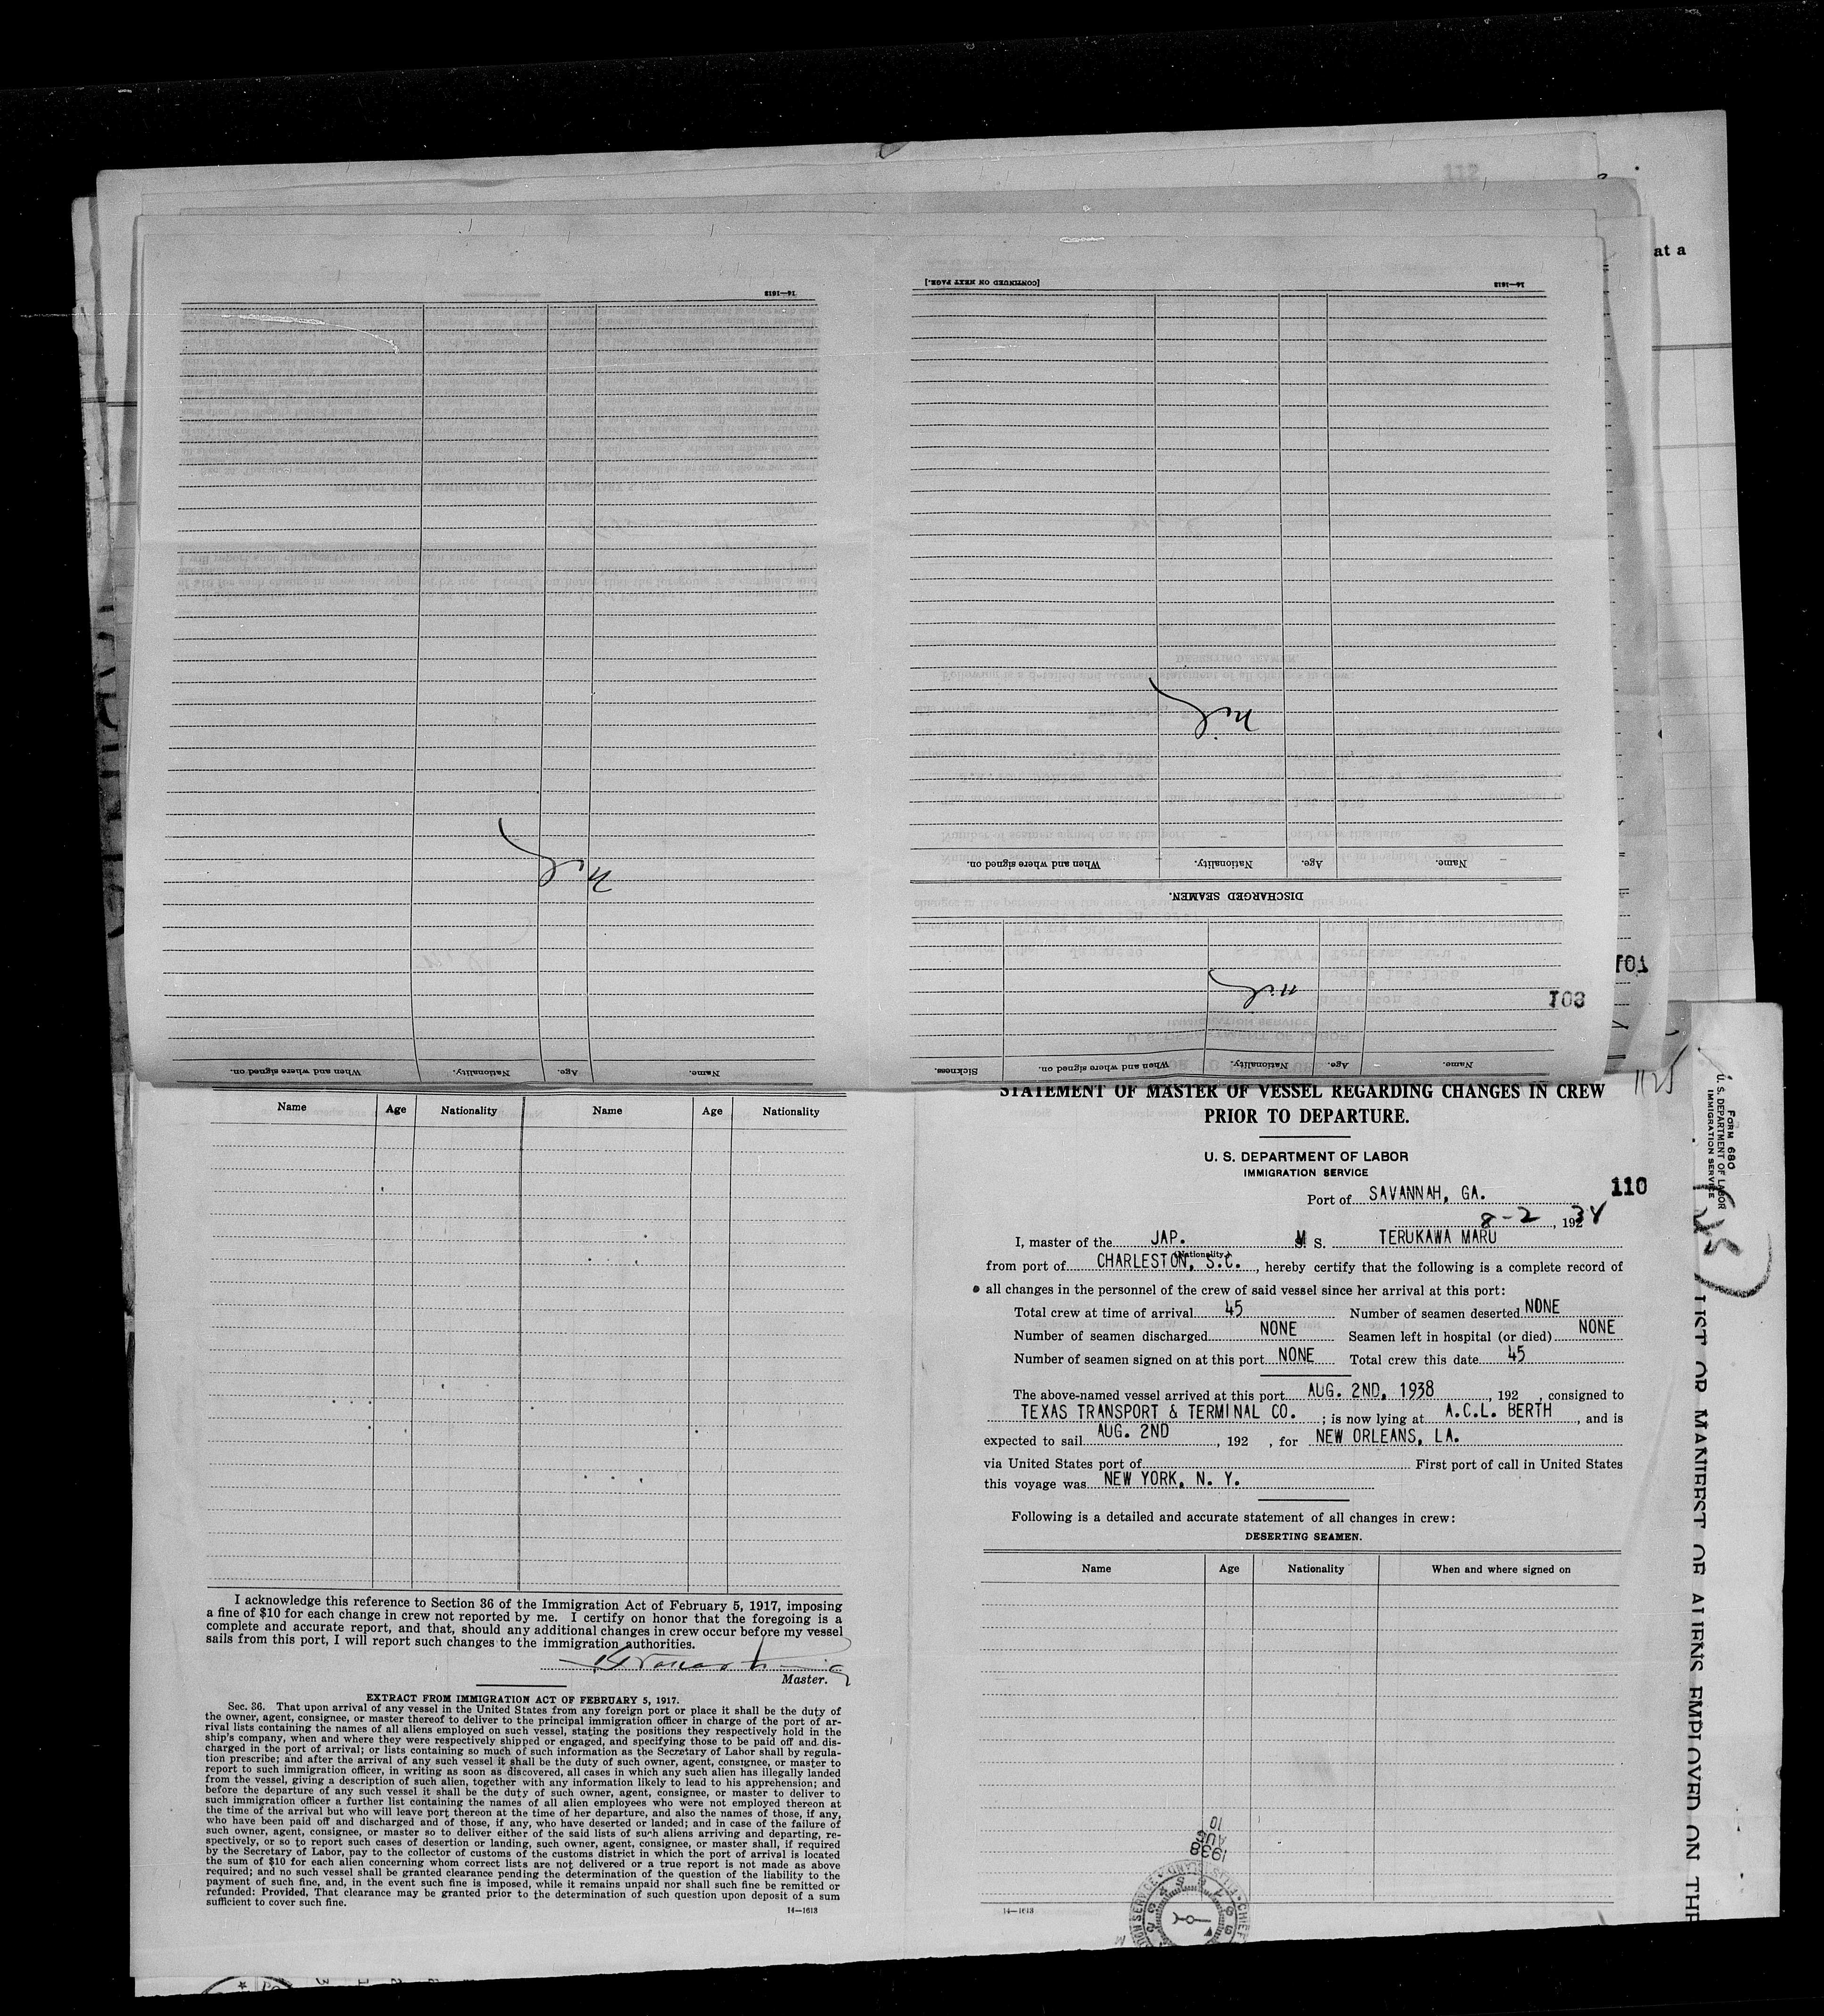 112
at a
[CONTINUED ON NEXT PAGE.]
14—1613
14—1613
nil
nil
When and where signed on.
Nationality.
Age.
Name.
DISCHARGED SEAMEN.
nil
101
108
Sickness.
When and where signed on.
Nationality.
Age.
Name.
When and where signed on.
Nationality.
Age.
Name.
Name
Age
Nationality
Name
Age
Nationality
I acknowledge this reference to Section 36 of the Immigration Act of February 5, 1917, imposing
a fine of $10 for each change in crew not reported by me. I certify on honor that the foregoing is a
complete and accurate report, and that, should any additional changes in crew occur before my vessel
sails from this port, I will report such changes to the immigration authorities.
Master.
EXTRACT FROM IMMIGRATION ACT OF FEBRUARY 5, 1917.
Sec. 36. That upon arrival of any vessel in the United States from any foreign port or place it shall be the duty of
the owner, agent, consignee, or master thereof to deliver to the principal immigration officer in charge of the port of ar-
rival lists containing the names of all aliens employed on such vessel, stating the positions they respectively hold in the
ship's company, when and where they were respectively shipped or engaged, and specifying those to be paid off and dis-
charged in the port of arrival; or lists containing so much of such information as the Secretary of Labor shall by regula-
tion prescribe; and after the arrival of any such vessel it shall be the duty of such owner, agent, consignee, or master to
report to such immigration officer, in writing as soon as discovered, all cases in which any such alien has illegally landed
from the vessel, giving a description of such alien, together with any information likely to lead to his apprehension; and
before the departure of any such vessel it shall be the duty of such owner, agent, consignee, or master to deliver to
such immigration officer a further list containing the names of all alien employees who were not employed thereon at
the time of the arrival but who will leave port thereon at the time of her departure, and also the names of those, if any,
who have been paid off and discharged and of those, if any, who have deserted or landed; and in case of the failure of
such owner, agent, consignee, or master so to deliver either of the said lists of such aliens arriving and departing, re-
spectively, or so to report such cases of desertion or landing, such owner, agent, consignee, or master shall, if required
by the Secretary of Labor, pay to the collector of customs of the customs district in which the port of arrival is located
the sum of $10 for each alien concerning whom correct lists are not delivered or a true report is not made as above
required; and no such vessel shall be granted clearance pending the determination of the question of the liability to the
payment of such fine, and, in the event such fine is imposed, while it remains unpaid nor shall such fine be remitted or
refunded: Provided, That clearance may be granted prior to the determination of such question upon deposit of a sum
sufficient to cover such fine.
14—1613
STATEMENT OF MASTER OF VESSEL REGARDING CHANGES IN CREW
PRIOR TO DEPARTURE.
1125
U. S. DEPARTMENT OF LABOR
IMMIGRATION SERVICE
Port of SAVANNAH, GA.
110
8-2, 1938
I, master of the JAP. M S. TERUKAWA MARU
(Nationality)
from port of CHARLESTON, S.C., hereby certify that the following is a complete record of
all changes in the personnel of the crew of said vessel since her arrival at this port:
Total crew at time of arrival 45 Number of seamen deserted NONE
Number of seamen discharged NONE Seamen left in hospital (or died) NONE
Number of seamen signed on at this port NONE Total crew this date 45
The above-named vessel arrived at this port AUG. 2ND, 1938, 192 , consigned to
TEXAS TRANSPORT & TERMINAL CO. ; is now lying at A.C.L. BERTH, and is
expected to sail AUG. 2ND, 192 , for NEW ORLEANS, LA.
via United States port of First port of call in United States
this voyage was NEW YORK, N. Y.
Following is a detailed and accurate statement of all changes in crew:
DESERTING SEAMEN.
Name
Age
Nationality
When and where signed on
10
AUG
1938
14—1613
FORM 680
U. S. DEPARTMENT OF LABOR
IMMIGRATION SERVICE
LIST OR MANIFEST OF ALIENS EMPLOYED ON THE